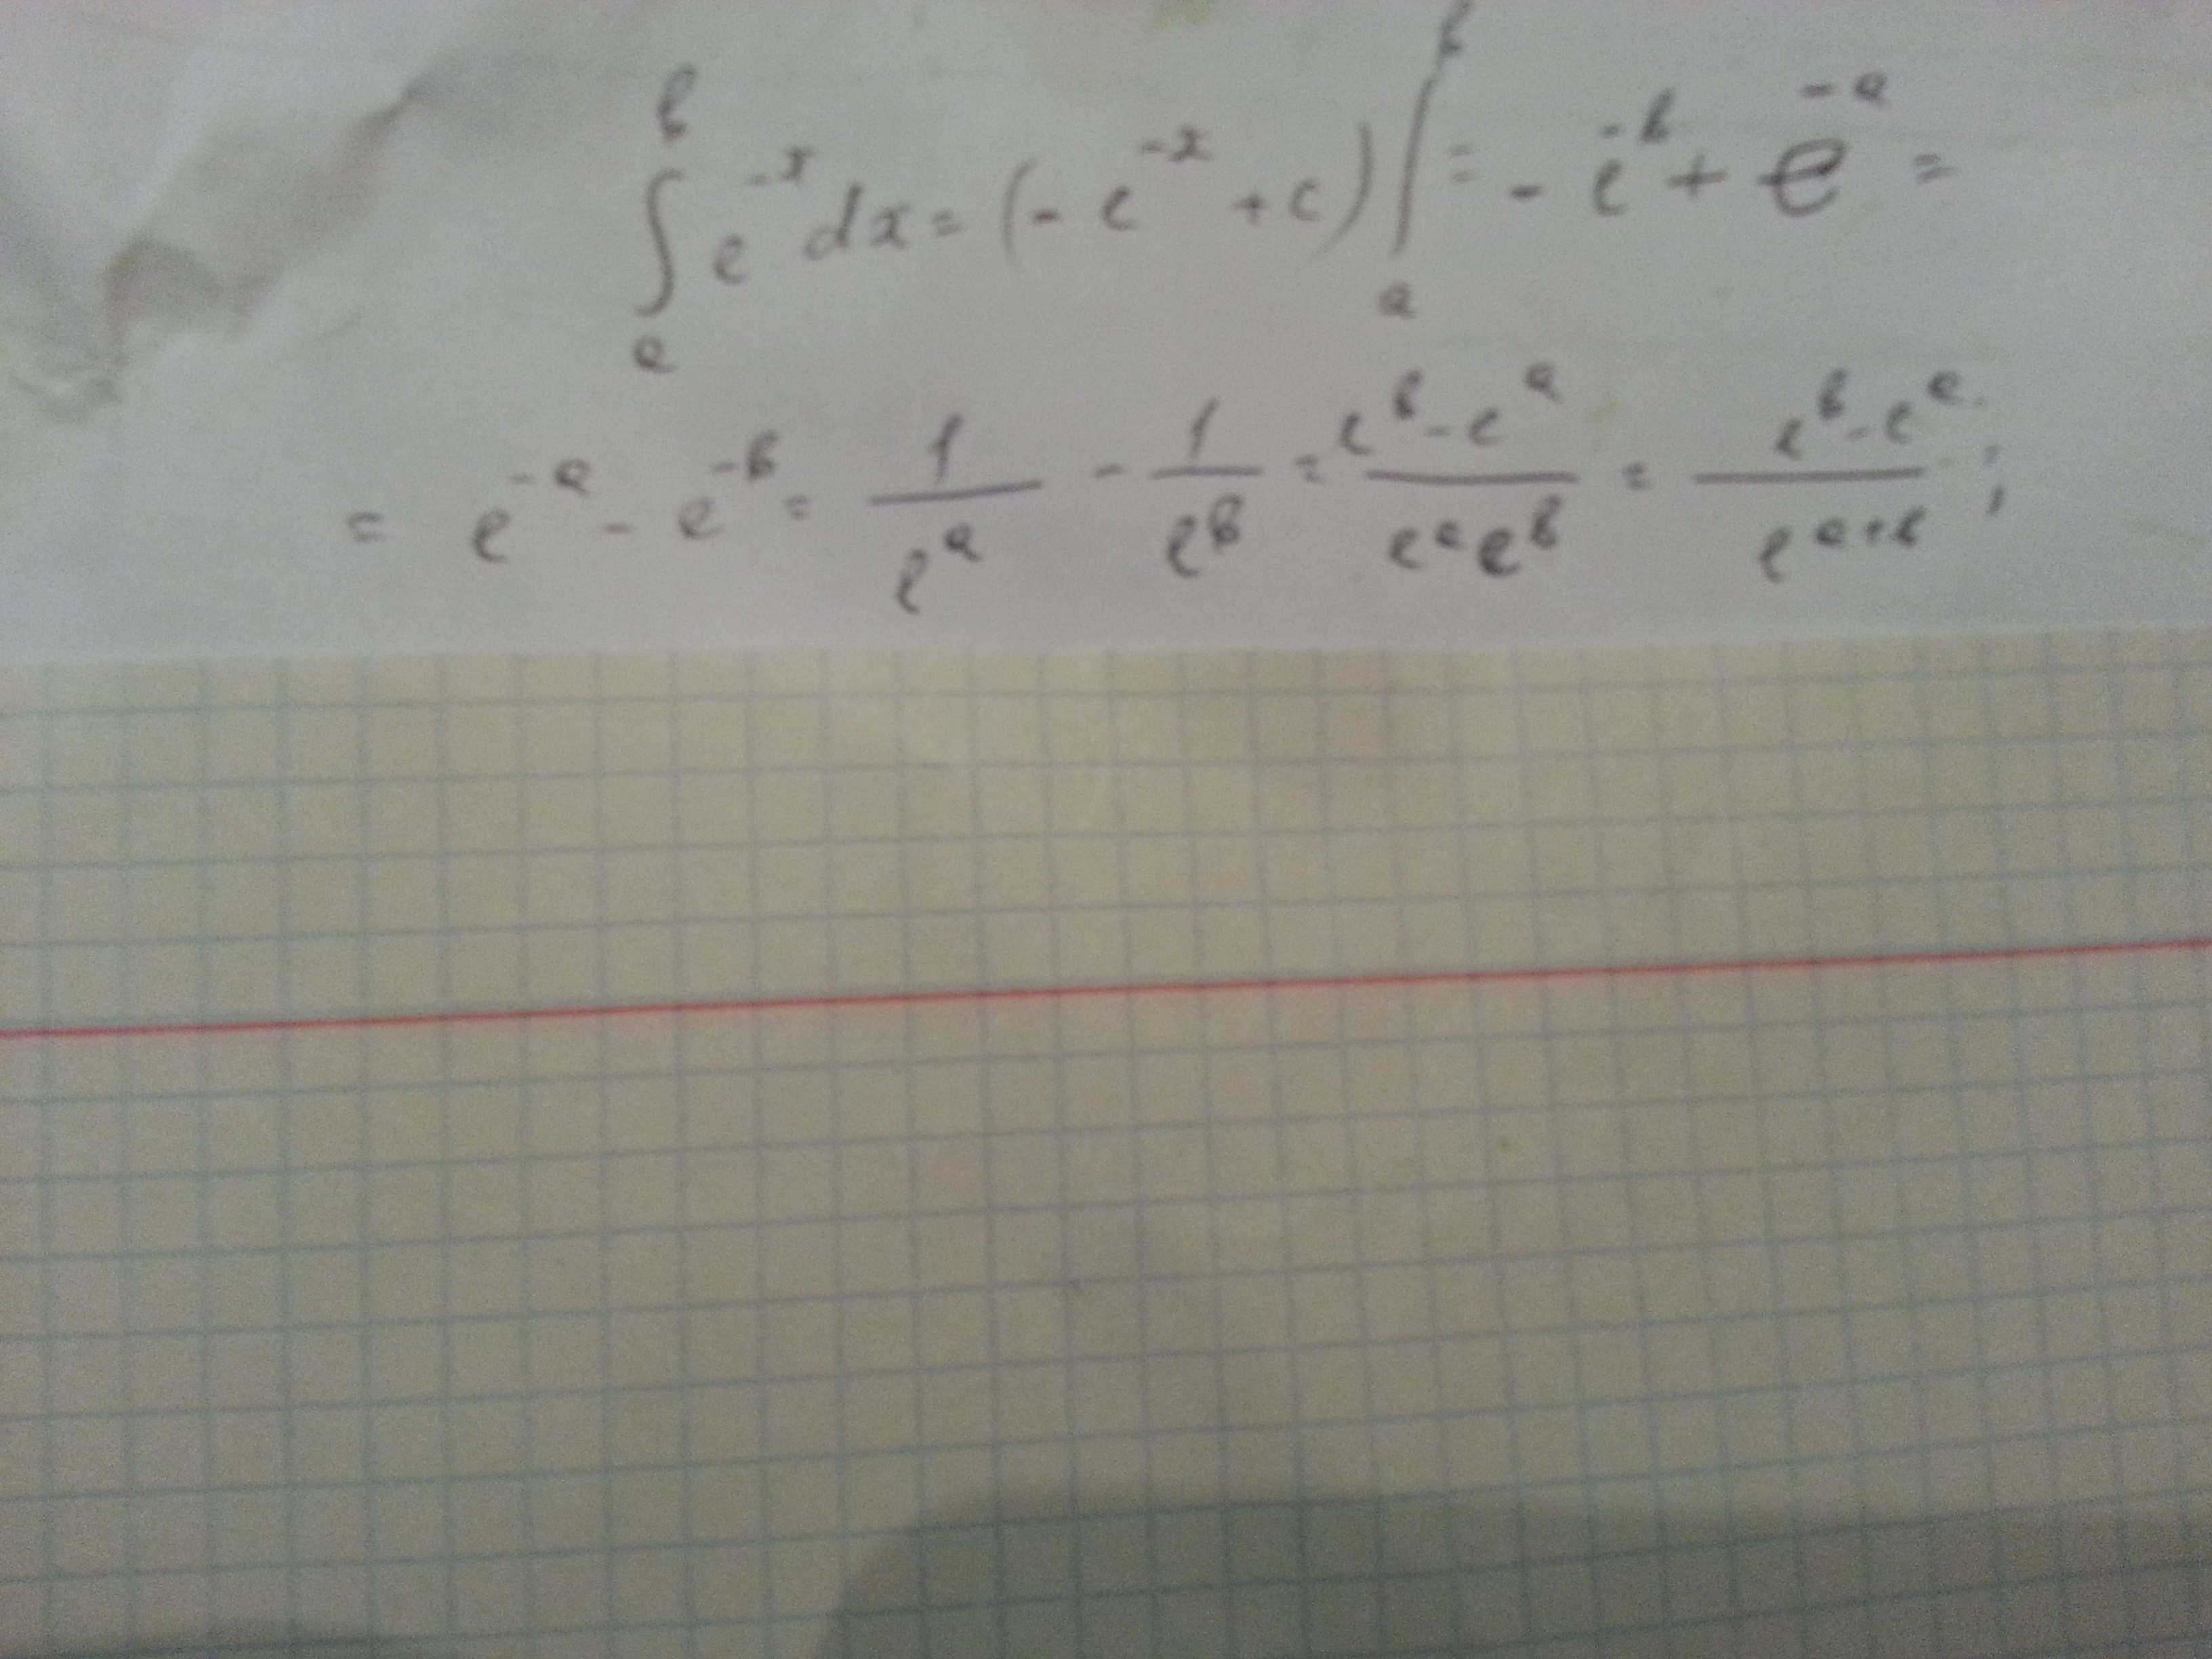 ∫ₐᵇ e⁻ˣdx = (-e⁻ˣ + c)|ₐᵇ = -e⁻ᵇ + e⁻ᵃ =
= e⁻ᵃ - e⁻ᵇ = 1/eᵃ - 1/eᵇ = (eᵇ - eᵃ)/(eᵃeᵇ) = (eᵇ - eᵃ)/(eᵃ⁺ᵇ) ;